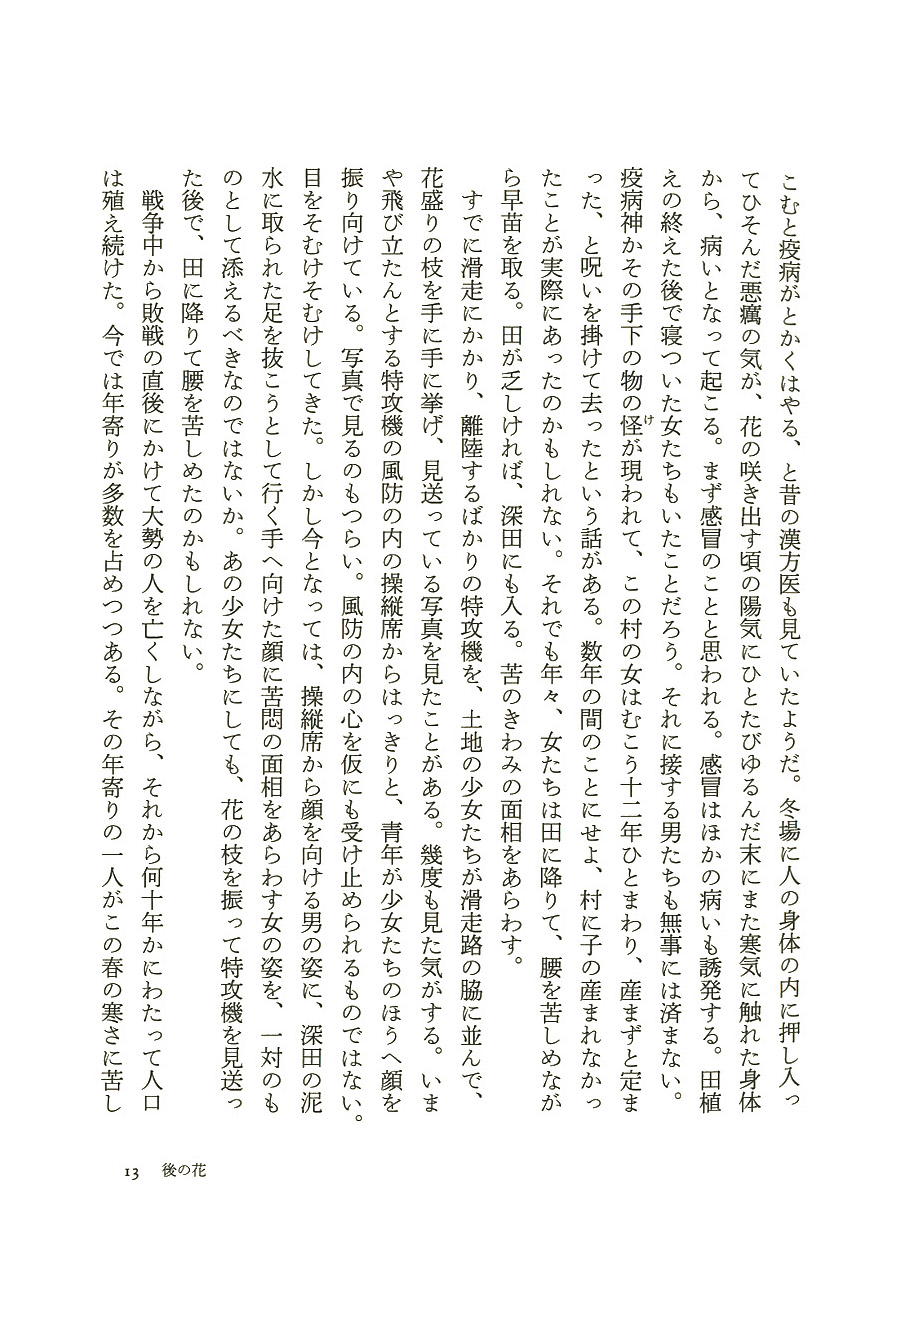 こむと疫病がとかくはやる、と昔の漢方医も見ていたようだ。冬場に人の身体の内に押し入っ
てひそんだ悪癘の気が、花の咲き出す頃の陽気にひとたびゆるんだ末にまた寒気に触れた身体
から、病いとなって起こる。まず感冒のことと思われる。感冒はほかの病いも誘発する。田植
えの終えた後で寝ついた女たちもいたことだろう。それに接する男たちも無事には済まない。
疫病神かその手下の物の怪が現われて、この村の女はむこう十二年ひとまわり、産まずと定ま
け
った、と呪いを掛けて去ったという話がある。数年の間のことにせよ、村に子の産まれなかっ
たことが実際にあったのかもしれない。それでも年々、女たちは田に降りて、腰を苦しめなが
ら早苗を取る。田が乏しければ、深田にも入る。苦のきわみの面相をあらわす。
すでに滑走にかかり、離陸するばかりの特攻機を、土地の少女たちが滑走路の脇に並んで、
花盛りの枝を手に手に挙げ、見送っている写真を見たことがある。幾度も見た気がする。いま
や飛び立たんとする特攻機の風防の内の操縦席からはっきりと、青年が少女たちのほうへ顔を
振り向けている。写真で見るのもつらい。風防の内の心を仮にも受け止められるものではない。
目をそむけそむけしてきた。しかし今となっては、操縦席から顔を向ける男の姿に、深田の泥
水に取られた足を抜こうとして行く手へ向けた顔に苦悶の面相をあらわす女の姿を、一対のも
のとして添えるべきなのではないか。あの少女たちにしても、花の枝を振って特攻機を見送っ
た後で、田に降りて腰を苦しめたのかもしれない。
戦争中から敗戦の直後にかけて大勢の人を亡くしながら、それから何十年かにわたって人口
は殖え続けた。今では年寄りが多数を占めつつある。その年寄りの一人がこの春の寒さに苦し
13 後の花